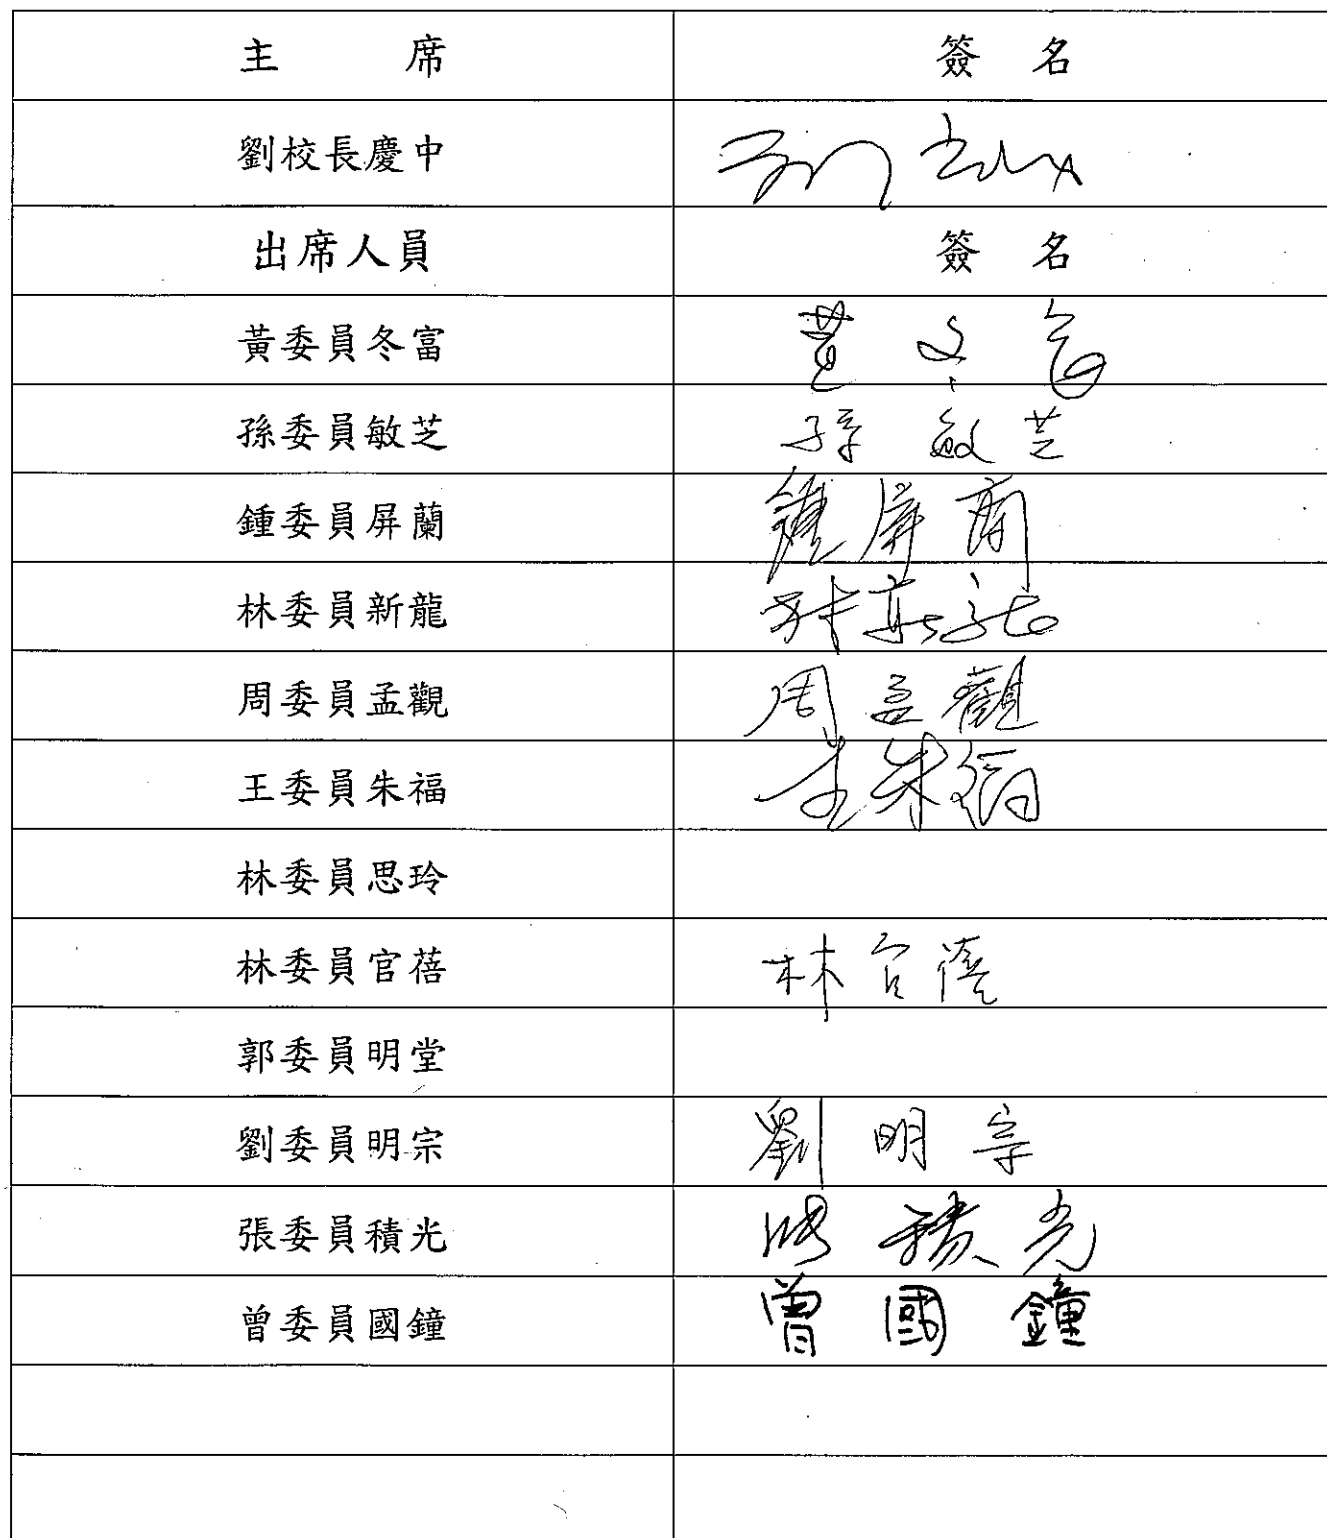 主 席 簽 名
劉校長慶中
出席人員 簽 名
黃委員冬富 黃冬富
孫委員敏芝 孫敏芝
鍾委員屏蘭 鍾屏蘭
林委員新龍 林新龍
周委員孟觀 周孟觀
王委員朱福 王朱福
林委員思玲
林委員官蓓 林官蓓
郭委員明堂
劉委員明宗 劉明宗
張委員積光 張積光
曾委員國鐘 曾國鐘